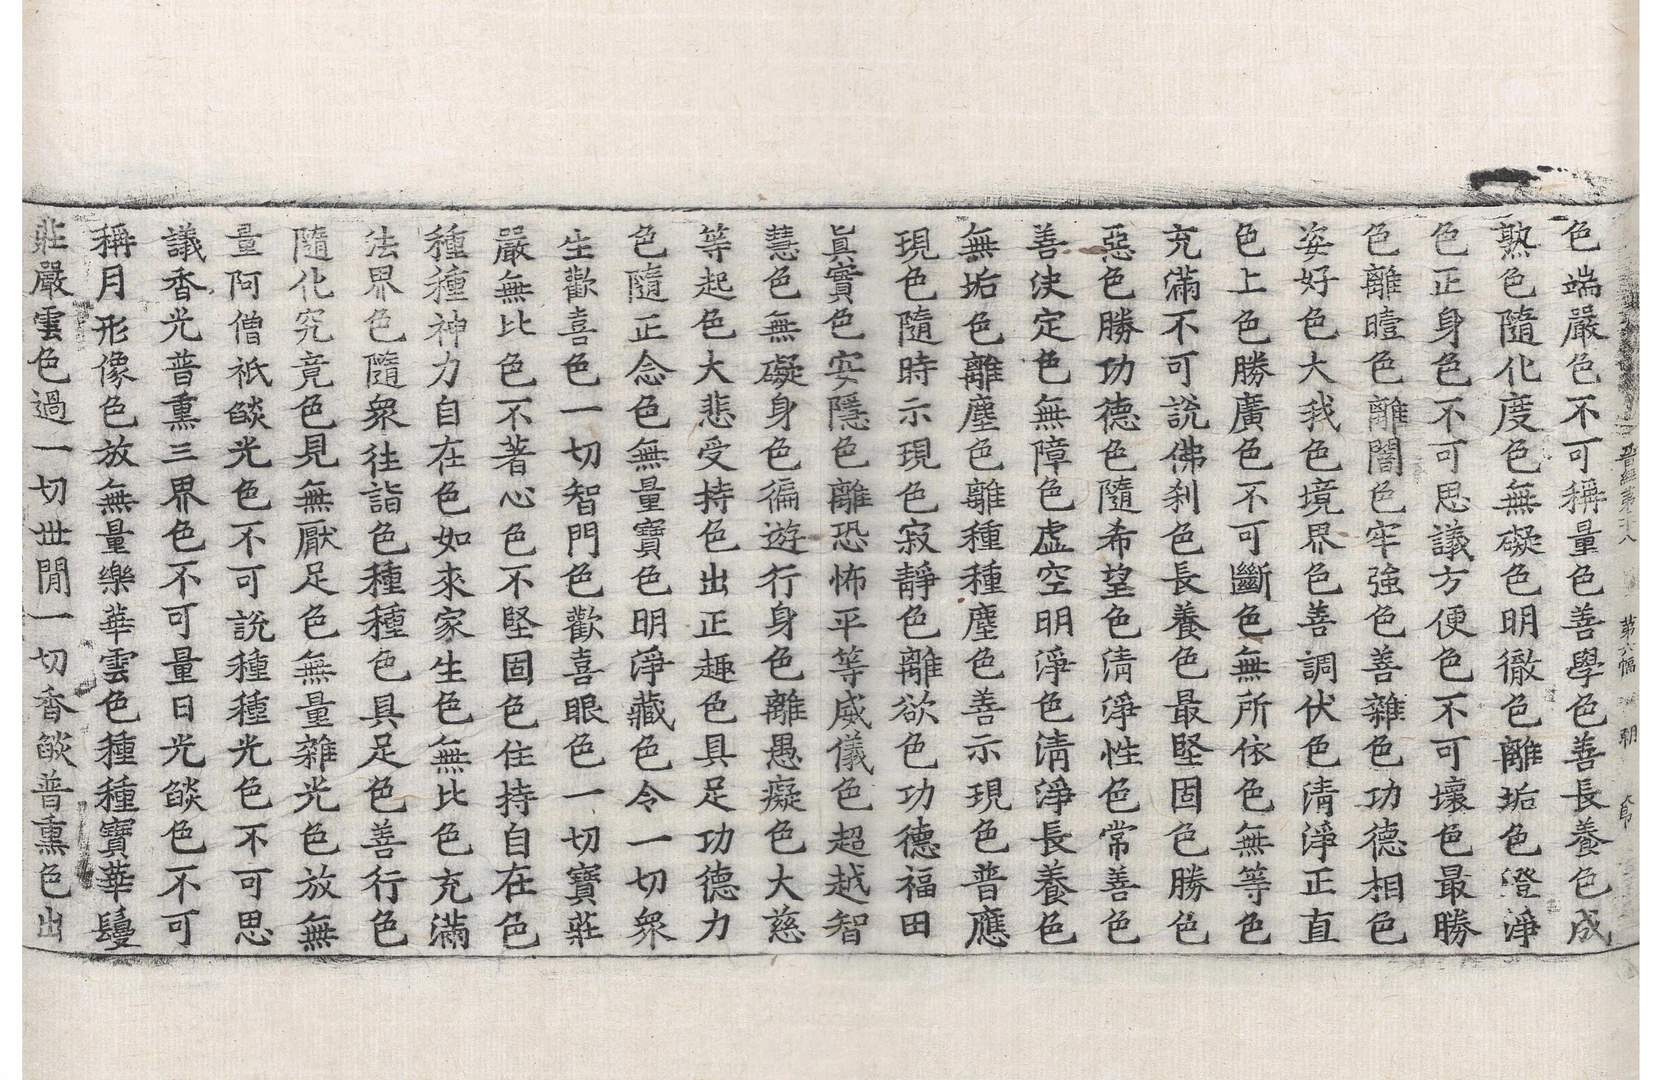 第六幅
色端嚴色不可稱量色善學色善長養色成
熟色隨化度色無礙色明徹色離垢色澄淨
色正身色不可思議方便色不可壞色最勝
色離曀色離闇色牢強色善雜色功德相色
姿好色大我色境界色善調伏色清淨正直
色上色勝廣色不可斷色無所依色無等色
充滿不可說佛刹色長養色最堅固色勝色
惡色勝功德色隨希望色清淨性色常善色
善決定色無障色虛空明淨色清淨長養色
無垢色離塵色離種種塵色善示現色普應
現色隨時示現色寂靜色離欲色功德福田
眞實色安隱色離恐怖平等威儀色超越智
慧色無礙身色徧遊行身色離愚癡色大慈
等起色大悲受持色出正趣色具足功德力
色隨正念色無量寶色明淨藏色令一切衆
生歡喜色一切智門色歡喜眼色一切寶莊
嚴無比色不著心色不堅固色住持自在色
種種神力自在色如來家生色無比色充滿
法界色隨衆往詣色種種色具足色善行色
隨化究竟色見無厭足色無量雜光色放無
量阿僧祇燄光色不可說種種光色不可思
議香光普熏三界色不可量日光燄色不可
稱月形像色放無量樂華雲色種種寶華鬘
莊嚴雲色過一切世間一切香燄普熏色出